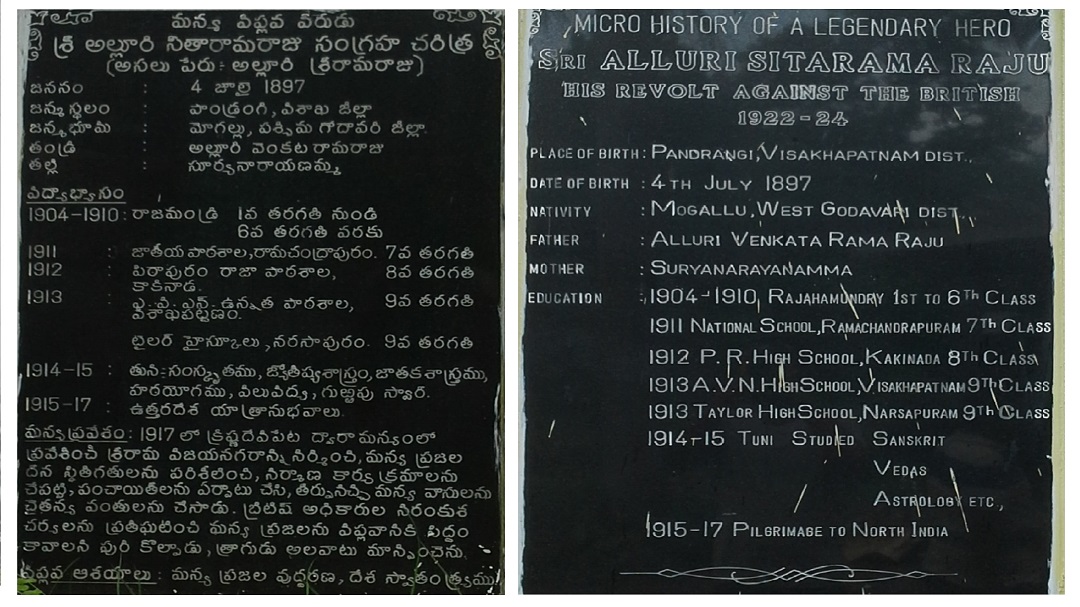 మన్య విప్లవ వీరుడు
శ్రీ అల్లూరి సీతారామరాజు సంగ్రహ చరిత్ర
(అసలు పేరు:- అల్లూరి శ్రీరామరాజు)
జననం : 4 జూలై 1897
జన్మస్థలం : పాండ్రంగి, విశాఖ జిల్లా
జన్మభూమి : మోగల్లు, పశ్చిమ గోదావరి జిల్లా.
తండ్రి : అల్లూరి వెంకట రామరాజు
తల్లి : సూర్యనారాయణమ్మ
విద్యాభ్యాసం
1904-1910 : రాజమండ్రి 1వ తరగతి నుండి
6వ తరగతి వరకు
1911 : జాతీయ పాఠశాల, రామచంద్రాపురం. 7వ తరగతి
1912 : పిఠాపురం రాజా పాఠశాల, 8వ తరగతి
కాకినాడ.
1913 : ఎ.వి.ఎన్. ఉన్నత పాఠశాల, 9వ తరగతి
విశాఖపట్టణం.
టైలర్ హైస్కూలు, నరసాపురం. 9వ తరగతి
1914-15 : తుని:-సంస్కృతము, జ్యోతిష్యశాస్త్రం, జాతకశాస్త్రము,
హఠయోగము, విలువిద్య, గుఱ్ఱపు స్వారీ.
1915-17 : ఉత్తరదేశ యాత్రానుభవాలు.
మన్యప్రవేశం: 1917 లో క్రిష్ణదేవిపేట ద్వారా మన్యంలో
ప్రవేశించి శ్రీరామ విజయనగరాన్ని నిర్మించి, మన్య ప్రజల
దీన స్థితిగతులను పరిశీలించి, నిర్మాణ కార్యక్రమాలను
చేపట్టి, పంచాయితీలను ఏర్పాటు చేసి, తీర్పునిచ్చి మన్య వాసులను
చైతన్య వంతులను చేసాడు. బ్రిటిష్ అధికారుల నిరంకుశ
చర్యలను ప్రతిఘటించి మన్య ప్రజలను విప్లవానికి సిద్ధం
కావాలని పురి కొల్పాడు, త్రాగుడు అలవాటు మాన్పించెను.
విప్లవ ఆశయాలు : మన్య ప్రజల వుద్ధరణ, దేశ స్వాతంత్ర్యము
MICRO HISTORY OF A LEGENDARY HERO
SRI ALLURI SITARAMA RAJU
HIS REVOLT AGAINST THE BRITISH
1922-24
PLACE OF BIRTH : PANDRANGI, VISAKHAPATNAM DIST.,
DATE OF BIRTH : 4TH JULY 1897
NATIVITY : MOGALLU, WEST GODAVARI DIST.,
FATHER : ALLURI VENKATA RAMA RAJU
MOTHER : SURYANARAYANAMMA
EDUCATION : 1904-1910, RAJAHAMUNDRY 1ST TO 6TH CLASS
1911 NATIONAL SCHOOL, RAMACHANDRAPURAM 7TH CLASS
1912 P. R. HIGH SCHOOL, KAKINADA 8TH CLASS
1913 A.V.N. HIGH SCHOOL, VISAKHAPATNAM 9TH CLASS
1913 TAYLOR HIGH SCHOOL, NARSAPURAM 9TH CLASS
1914-15 TUNI STUDIED SANSKRIT
VEDAS
ASTROLOGY ETC.,
1915-17 PILGRIMAGE TO NORTH INDIA